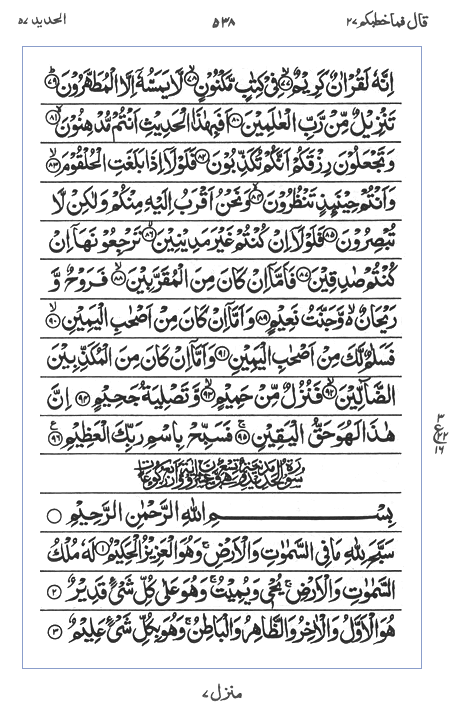 قال فماخطبكم ٢٧
٥٣٨
الحديد ٥٧
اِنَّهٗ لَقُرْاٰنٌ كَرِيْمٌ ۙ﴿٧٧﴾ فِىْ كِتٰبٍ مَّكْنُوْنٍ ۙ﴿٧٨﴾ لَّا يَمَسُّهٗۤ اِلَّا الْمُطَهَّرُوْنَ ؕ﴿٧٩﴾
تَنْزِيْلٌ مِّنْ رَّبِّ الْعٰلَمِيْنَ ﴿٨٠﴾ اَفَبِهٰذَا الْحَدِيْثِ اَنْتُمْ مُّدْهِنُوْنَ ۙ﴿٨١﴾
وَ تَجْعَلُوْنَ رِزْقَكُمْ اَنَّكُمْ تُكَذِّبُوْنَ ﴿٨٢﴾ فَلَوْلَاۤ اِذَا بَلَغَتِ الْحُلْقُوْمَ ۙ﴿٨٣﴾
وَ اَنْتُمْ حِيْنَئِذٍ تَنْظُرُوْنَ ۙ﴿٨٤﴾ وَ نَحْنُ اَقْرَبُ اِلَيْهِ مِنْكُمْ وَ لٰكِنْ لَّا
تُبْصِرُوْنَ ﴿٨٥﴾ فَلَوْلَاۤ اِنْ كُنْتُمْ غَيْرَ مَدِيْنِيْنَ ۙ﴿٨٦﴾ تَرْجِعُوْنَهَاۤ اِنْ
كُنْتُمْ صٰدِقِيْنَ ﴿٨٧﴾ فَاَمَّاۤ اِنْ كَانَ مِنَ الْمُقَرَّبِيْنَ ۙ﴿٨٨﴾ فَرَوْحٌ وَّ
رَيْحَانٌ ۙ۬ وَّ جَنَّتُ نَعِيْمٍ ﴿٨٩﴾ وَ اَمَّاۤ اِنْ كَانَ مِنْ اَصْحٰبِ الْيَمِيْنِ ۙ﴿٩٠﴾
فَسَلٰمٌ لَّكَ مِنْ اَصْحٰبِ الْيَمِيْنِ ﴿٩١﴾ وَ اَمَّاۤ اِنْ كَانَ مِنَ الْمُكَذِّبِيْنَ
الضَّآلِّيْنَ ۙ﴿٩٢﴾ فَنُزُلٌ مِّنْ حَمِيْمٍ ۙ﴿٩٣﴾ وَّ تَصْلِيَةُ جَحِيْمٍ ﴿٩٤﴾ اِنَّ
هٰذَا لَهُوَ حَقُّ الْيَقِيْنِ ۚ﴿٩٥﴾ فَسَبِّحْ بِاسْمِ رَبِّكَ الْعَظِيْمِ ﴿٩٦﴾
٣
ع ٢٢
١٦
سُوْرَةُ الْحَدِيْدِ مَدَنِيَّةٌ
بِسْمِ اللّٰهِ الرَّحْمٰنِ الرَّحِيْمِ ○
سَبَّحَ لِلّٰهِ مَا فِى السَّمٰوٰتِ وَ الْاَرْضِ ۚ وَ هُوَ الْعَزِيْزُ الْحَكِيْمُ ﴿١﴾ لَهٗ مُلْكُ
السَّمٰوٰتِ وَ الْاَرْضِ ۚ يُحْىٖ وَ يُمِيْتُ ۚ وَ هُوَ عَلٰى كُلِّ شَىْءٍ قَدِيْرٌ ﴿٢﴾
هُوَ الْاَوَّلُ وَ الْاٰخِرُ وَ الظَّاهِرُ وَ الْبَاطِنُ ۚ وَ هُوَ بِكُلِّ شَىْءٍ عَلِيْمٌ ﴿٣﴾
منزل ٧